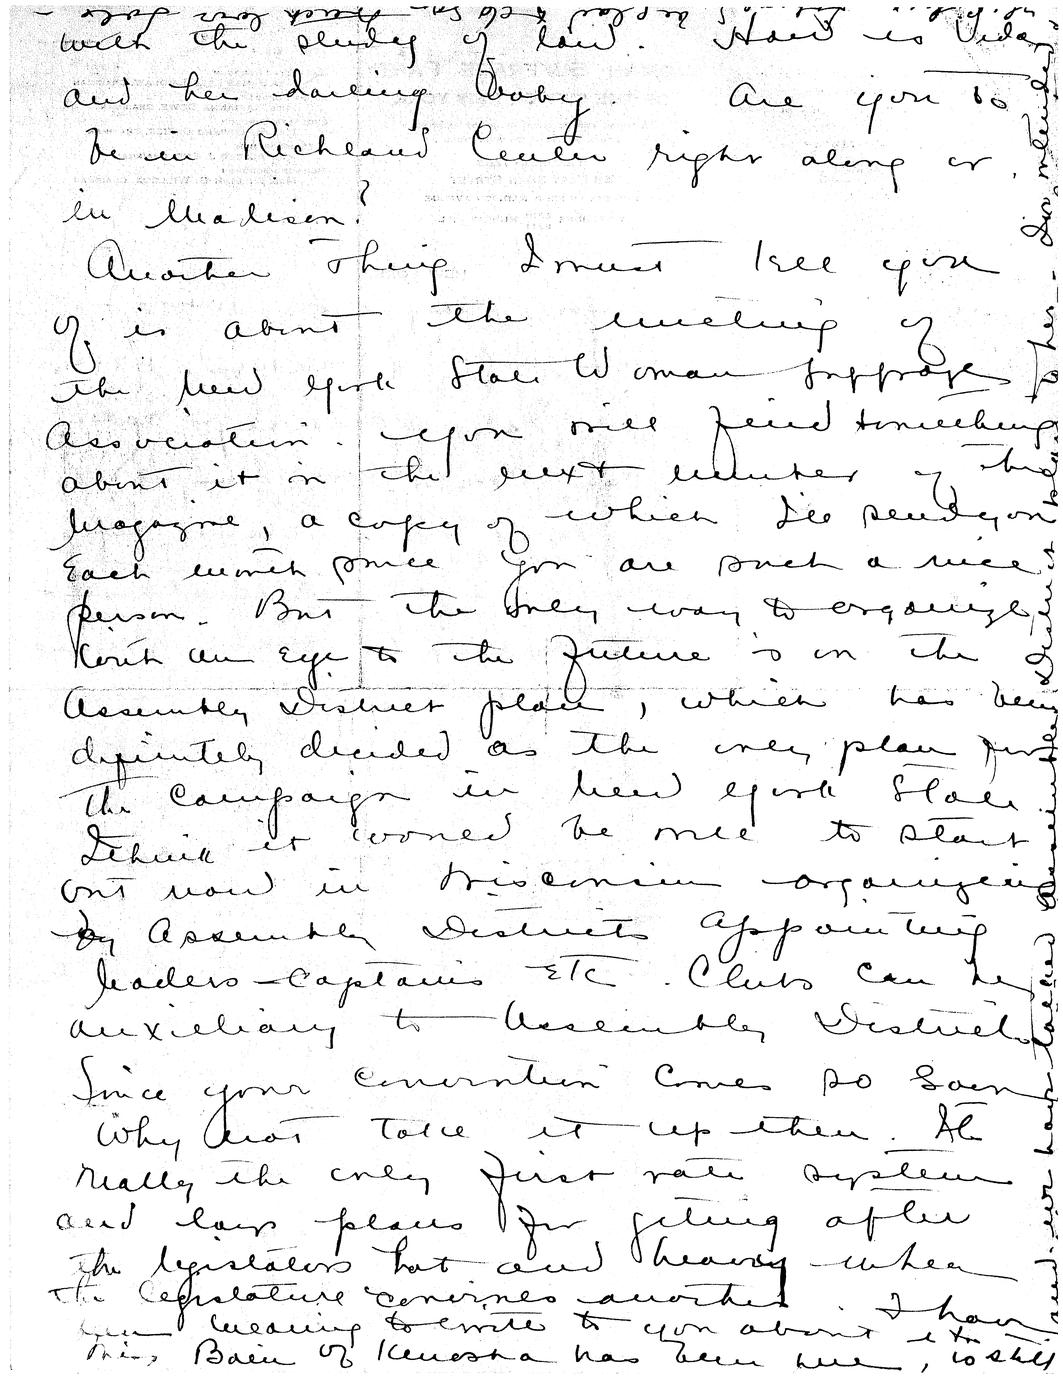 with the study of law. How is Vida
and her darling baby. Are you to
be in Richland Center right along or
in Madison?
Another thing I must tell you
of is about the meeting of
the New York State Woman Suffrage
Association. you will find something
about it in the next number of the
Magazine, a copy of which I'll send you
Each month since you are such a nice
person. But the only way to organize
with an Eye to the future is on the
Assembly District plan, which has been
definitely decided as the only plan for
the campaign in New York State
I think it would be well to start
out now in Wisconsin organizing
by Assembly Districts appointing
leaders - Captains Etc. Clubs can be
auxiliary to Assembly District.
Since your convention comes so soon
Why not take it up then. It
really the only first rate system
and lays plans for geting after
the legislators hot and heavy when
the legislature convenes another. I have
been meaning to write to you about it
Miss Bain of Kenosha has been here, is still
and we have talked Assembly District plan
to her - I've intended